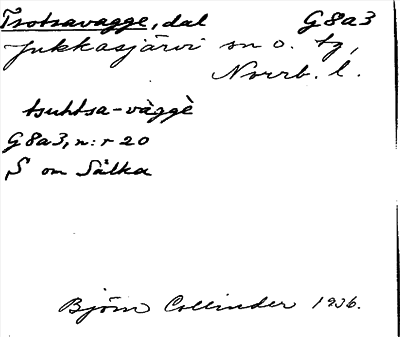 Tsotsavagge, dal G8a3
Jukkasjärvi sn o. tg,
Norrb. l.
tsuhtsa-vàggè
G8a3, n:r 20
S om Sälka
Björn Collinder 1936.